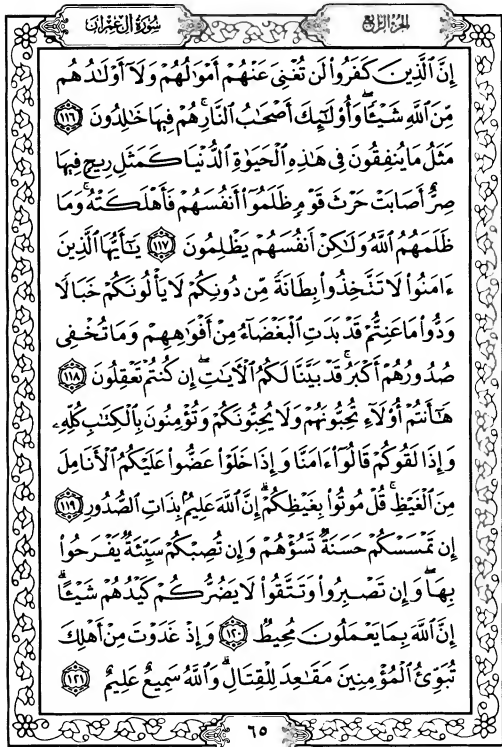 سُورَةُ آلِ عِمْرَانَ
الجُزْءُ الرَّابِعُ
إِنَّ ٱلَّذِينَ كَفَرُواْ لَن تُغْنِىَ عَنْهُمْ أَمْوَٰلُهُمْ وَلَآ أَوْلَٰدُهُم
مِّنَ ٱللَّهِ شَيْـًٔا ۖ وَأُوْلَٰٓئِكَ أَصْحَٰبُ ٱلنَّارِ ۚ هُمْ فِيهَا خَٰلِدُونَ ١١٦
مَثَلُ مَا يُنفِقُونَ فِى هَٰذِهِ ٱلْحَيَوٰةِ ٱلدُّنْيَا كَمَثَلِ رِيحٍ فِيهَا
صِرٌّ أَصَابَتْ حَرْثَ قَوْمٍ ظَلَمُوٓاْ أَنفُسَهُمْ فَأَهْلَكَتْهُ ۚ وَمَا
ظَلَمَهُمُ ٱللَّهُ وَلَٰكِنْ أَنفُسَهُمْ يَظْلِمُونَ ١١٧ يَٰٓأَيُّهَا ٱلَّذِينَ
ءَامَنُواْ لَا تَتَّخِذُواْ بِطَانَةً مِّن دُونِكُمْ لَا يَأْلُونَكُمْ خَبَالًا
وَدُّواْ مَا عَنِتُّمْ قَدْ بَدَتِ ٱلْبَغْضَآءُ مِنْ أَفْوَٰهِهِمْ وَمَا تُخْفِى
صُدُورُهُمْ أَكْبَرُ ۚ قَدْ بَيَّنَّا لَكُمُ ٱلْءَايَٰتِ ۖ إِن كُنتُمْ تَعْقِلُونَ ١١٨
هَٰٓأَنتُمْ أُوْلَآءِ تُحِبُّونَهُمْ وَلَا يُحِبُّونَكُمْ وَتُؤْمِنُونَ بِٱلْكِتَٰبِ كُلِّهِۦ
وَإِذَا لَقُوكُمْ قَالُوٓاْ ءَامَنَّا وَإِذَا خَلَوْاْ عَضُّواْ عَلَيْكُمُ ٱلْأَنَامِلَ
مِنَ ٱلْغَيْظِ ۚ قُلْ مُوتُواْ بِغَيْظِكُمْ ۗ إِنَّ ٱللَّهَ عَلِيمٌۢ بِذَاتِ ٱلصُّدُورِ ١١٩
إِن تَمْسَسْكُمْ حَسَنَةٌ تَسُؤْهُمْ وَإِن تُصِبْكُمْ سَيِّئَةٌ يَفْرَحُواْ
بِهَا ۖ وَإِن تَصْبِرُواْ وَتَتَّقُواْ لَا يَضُرُّكُمْ كَيْدُهُمْ شَيْـًٔا ۗ
إِنَّ ٱللَّهَ بِمَا يَعْمَلُونَ مُحِيطٌ ١٢٠ وَإِذْ غَدَوْتَ مِنْ أَهْلِكَ
تُبَوِّئُ ٱلْمُؤْمِنِينَ مَقَٰعِدَ لِلْقِتَالِ ۗ وَٱللَّهُ سَمِيعٌ عَلِيمٌ ١٢١
٦٥